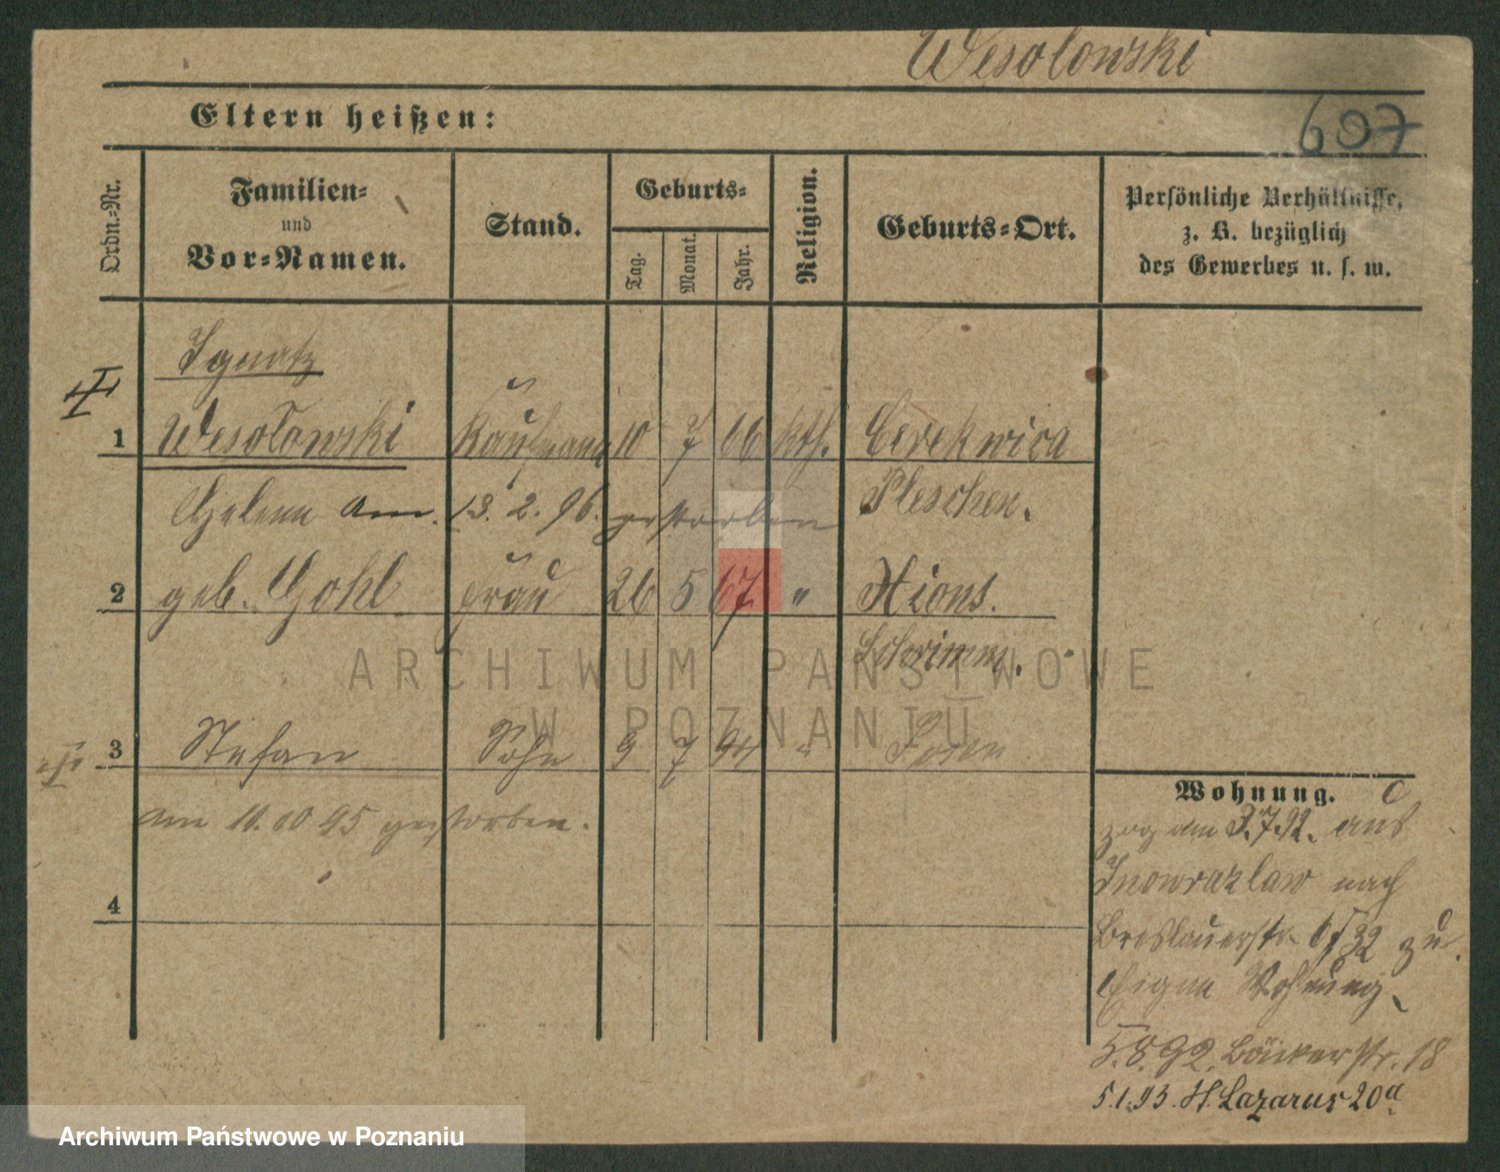 Wesolowski
607
Eltern heißen:
Ordn.-Nr.
Familien-
und
Vor-Namen.
Stand.
Geburts-
Tag.
Monat.
Jahr.
Religion.
Geburts-Ort.
Persönliche Verhältnisse,
z. B. bezüglich
des Gewerbes u. s. w.
Ignatz
1 Wesołowski Kaufmann 10 7 66 kth. Cerekwica
Pleschen.
Helena am 13. 2. 96. gestorben
2 geb. Gohl Frau 26 5 67 " Xions.
Schrimm.
3 Stefan Sohn 9 7 94 " Posen
am 11. 10 95 gestorben.
4
Wohnung.
zog am 3.7.92. aus
Inowrazlaw nach
Breslauerstr. 32 zu.
Eigne Wohnung.
5.8.92. Bäckerstr. 18
5.1.93. St. Lazarus 20a
ARCHIWUM PAŃSTWOWE
W POZNANIU
Archiwum Państwowe w Poznaniu